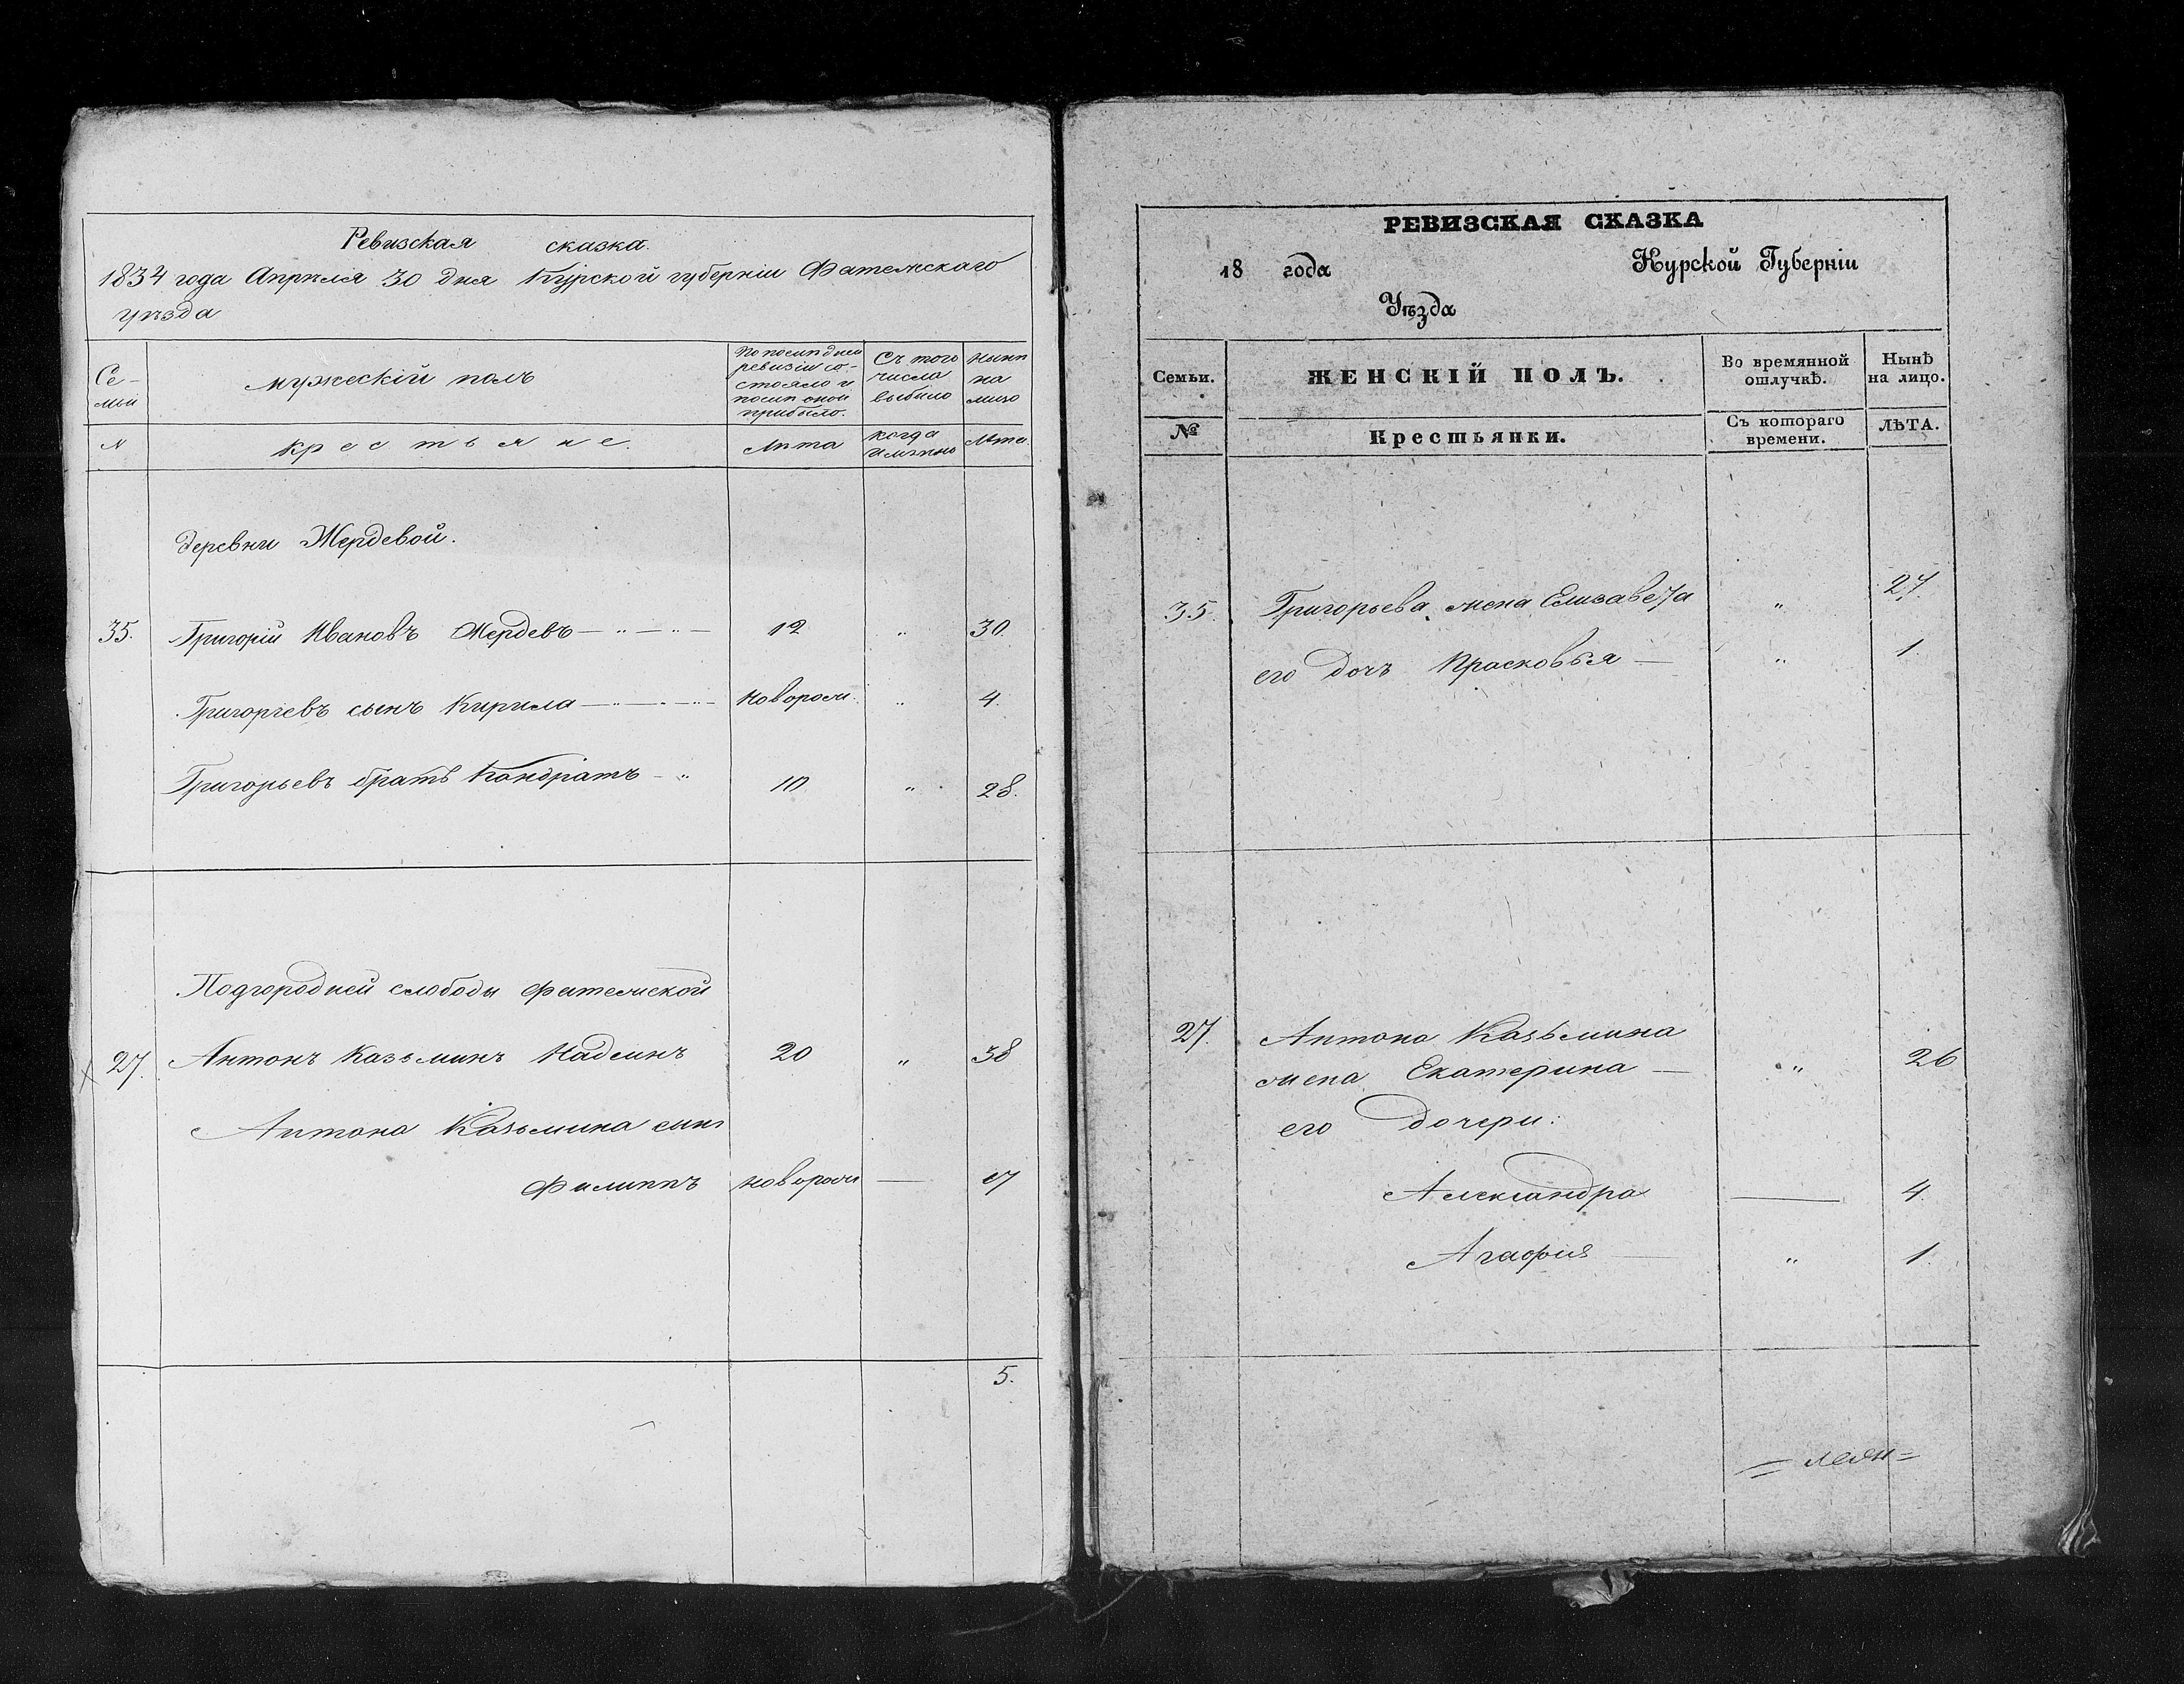 Ревизская сказка.
1834 года Апреля 30 дня Курской губерніи Фатежскаго
уѣзда
Се-
мьи
мужескій полъ
По послѣдней
ревизіи со-
стояло и
послѣ оной
прибыло.
Съ того
числа
выбыло
Нынѣ
на
лицо
№
крестьяне.
Лѣта
когда
имянно
Лѣта.
деревни Жердевой.
35. Григорій Ивановъ Жердевъ — " — " — 12 " 30.
Григорьевъ сынъ Кирила — " — " — новорож. " 4.
Григорьевъ братъ Кондратъ — " 10 " 28.
Подгородней слободы Фатежской
27. Антонъ Казьминъ Надеинъ 20 " 38
Антона Казьмина сынъ
Филиппъ новорож —
5.
РЕВИЗСКАЯ СКАЗКА
18 года Курской Губерніи
Уѣзда
Семьи.
ЖЕНСКІЙ ПОЛЪ.
Во времянной
отлучкѣ.
Нынѣ
на лицо.
№
Крестьянки.
Съ котораго
времени.
ЛѢТА.
35. Григорьева жена Елизавета " 27.
его дочь Прасковья — " 1.
27. Антона Казьмина
жена Екатерина — " 26
его дочери:
Александра — 4.
Агафия — " 1.